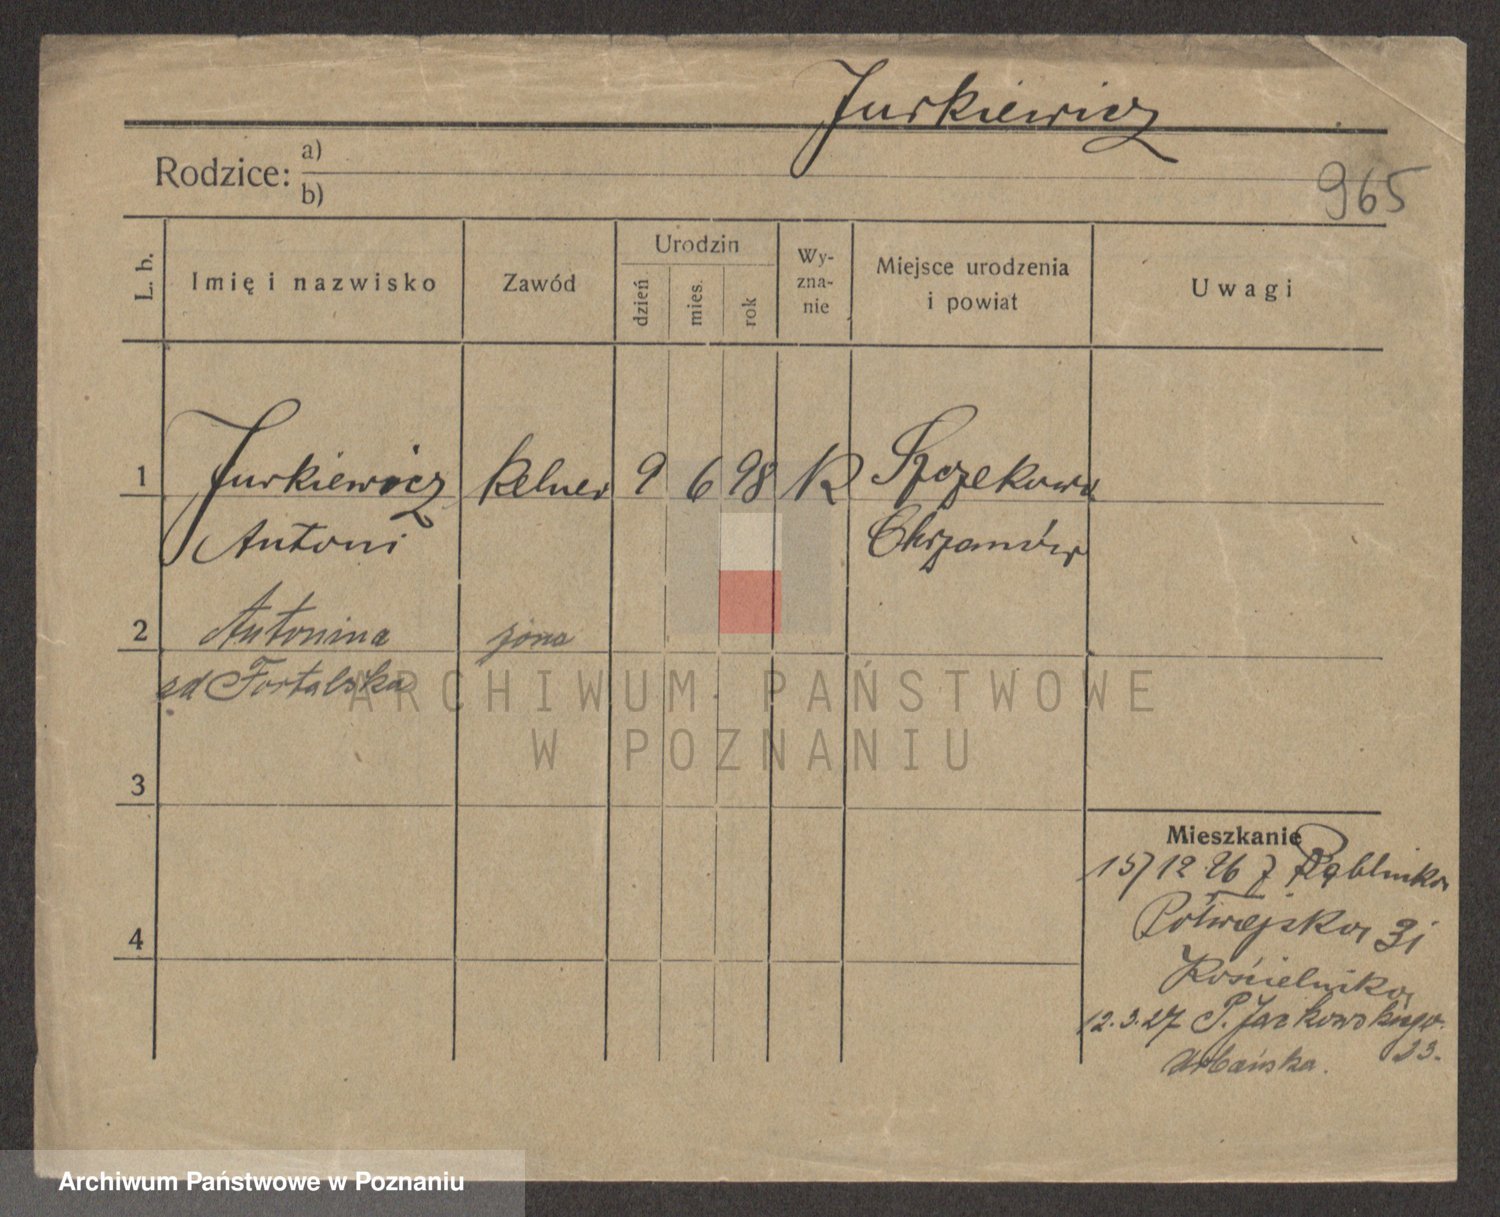 Jurkiewicz
Rodzice: a)
b)
965
L. b.
Imię i nazwisko
Zawód
Urodzin
dzień
mies.
rok
Wy-
zna-
nie
Miejsce urodzenia
i powiat
Uwagi
1
Jurkiewicz kelner 9 6 98 R Szczekowa
Antoni Chrzanów
2
Antonina żona
zd Fortalska
ARCHIWUM PAŃSTWOWE
W POZNANIU
3
4
Mieszkanie
15/12 26 z Rąblinka
Półwiejska 31
Kościelniko
12.3.27 P. Jackowskiego
33.
Urbańska.
Archiwum Państwowe w Poznaniu